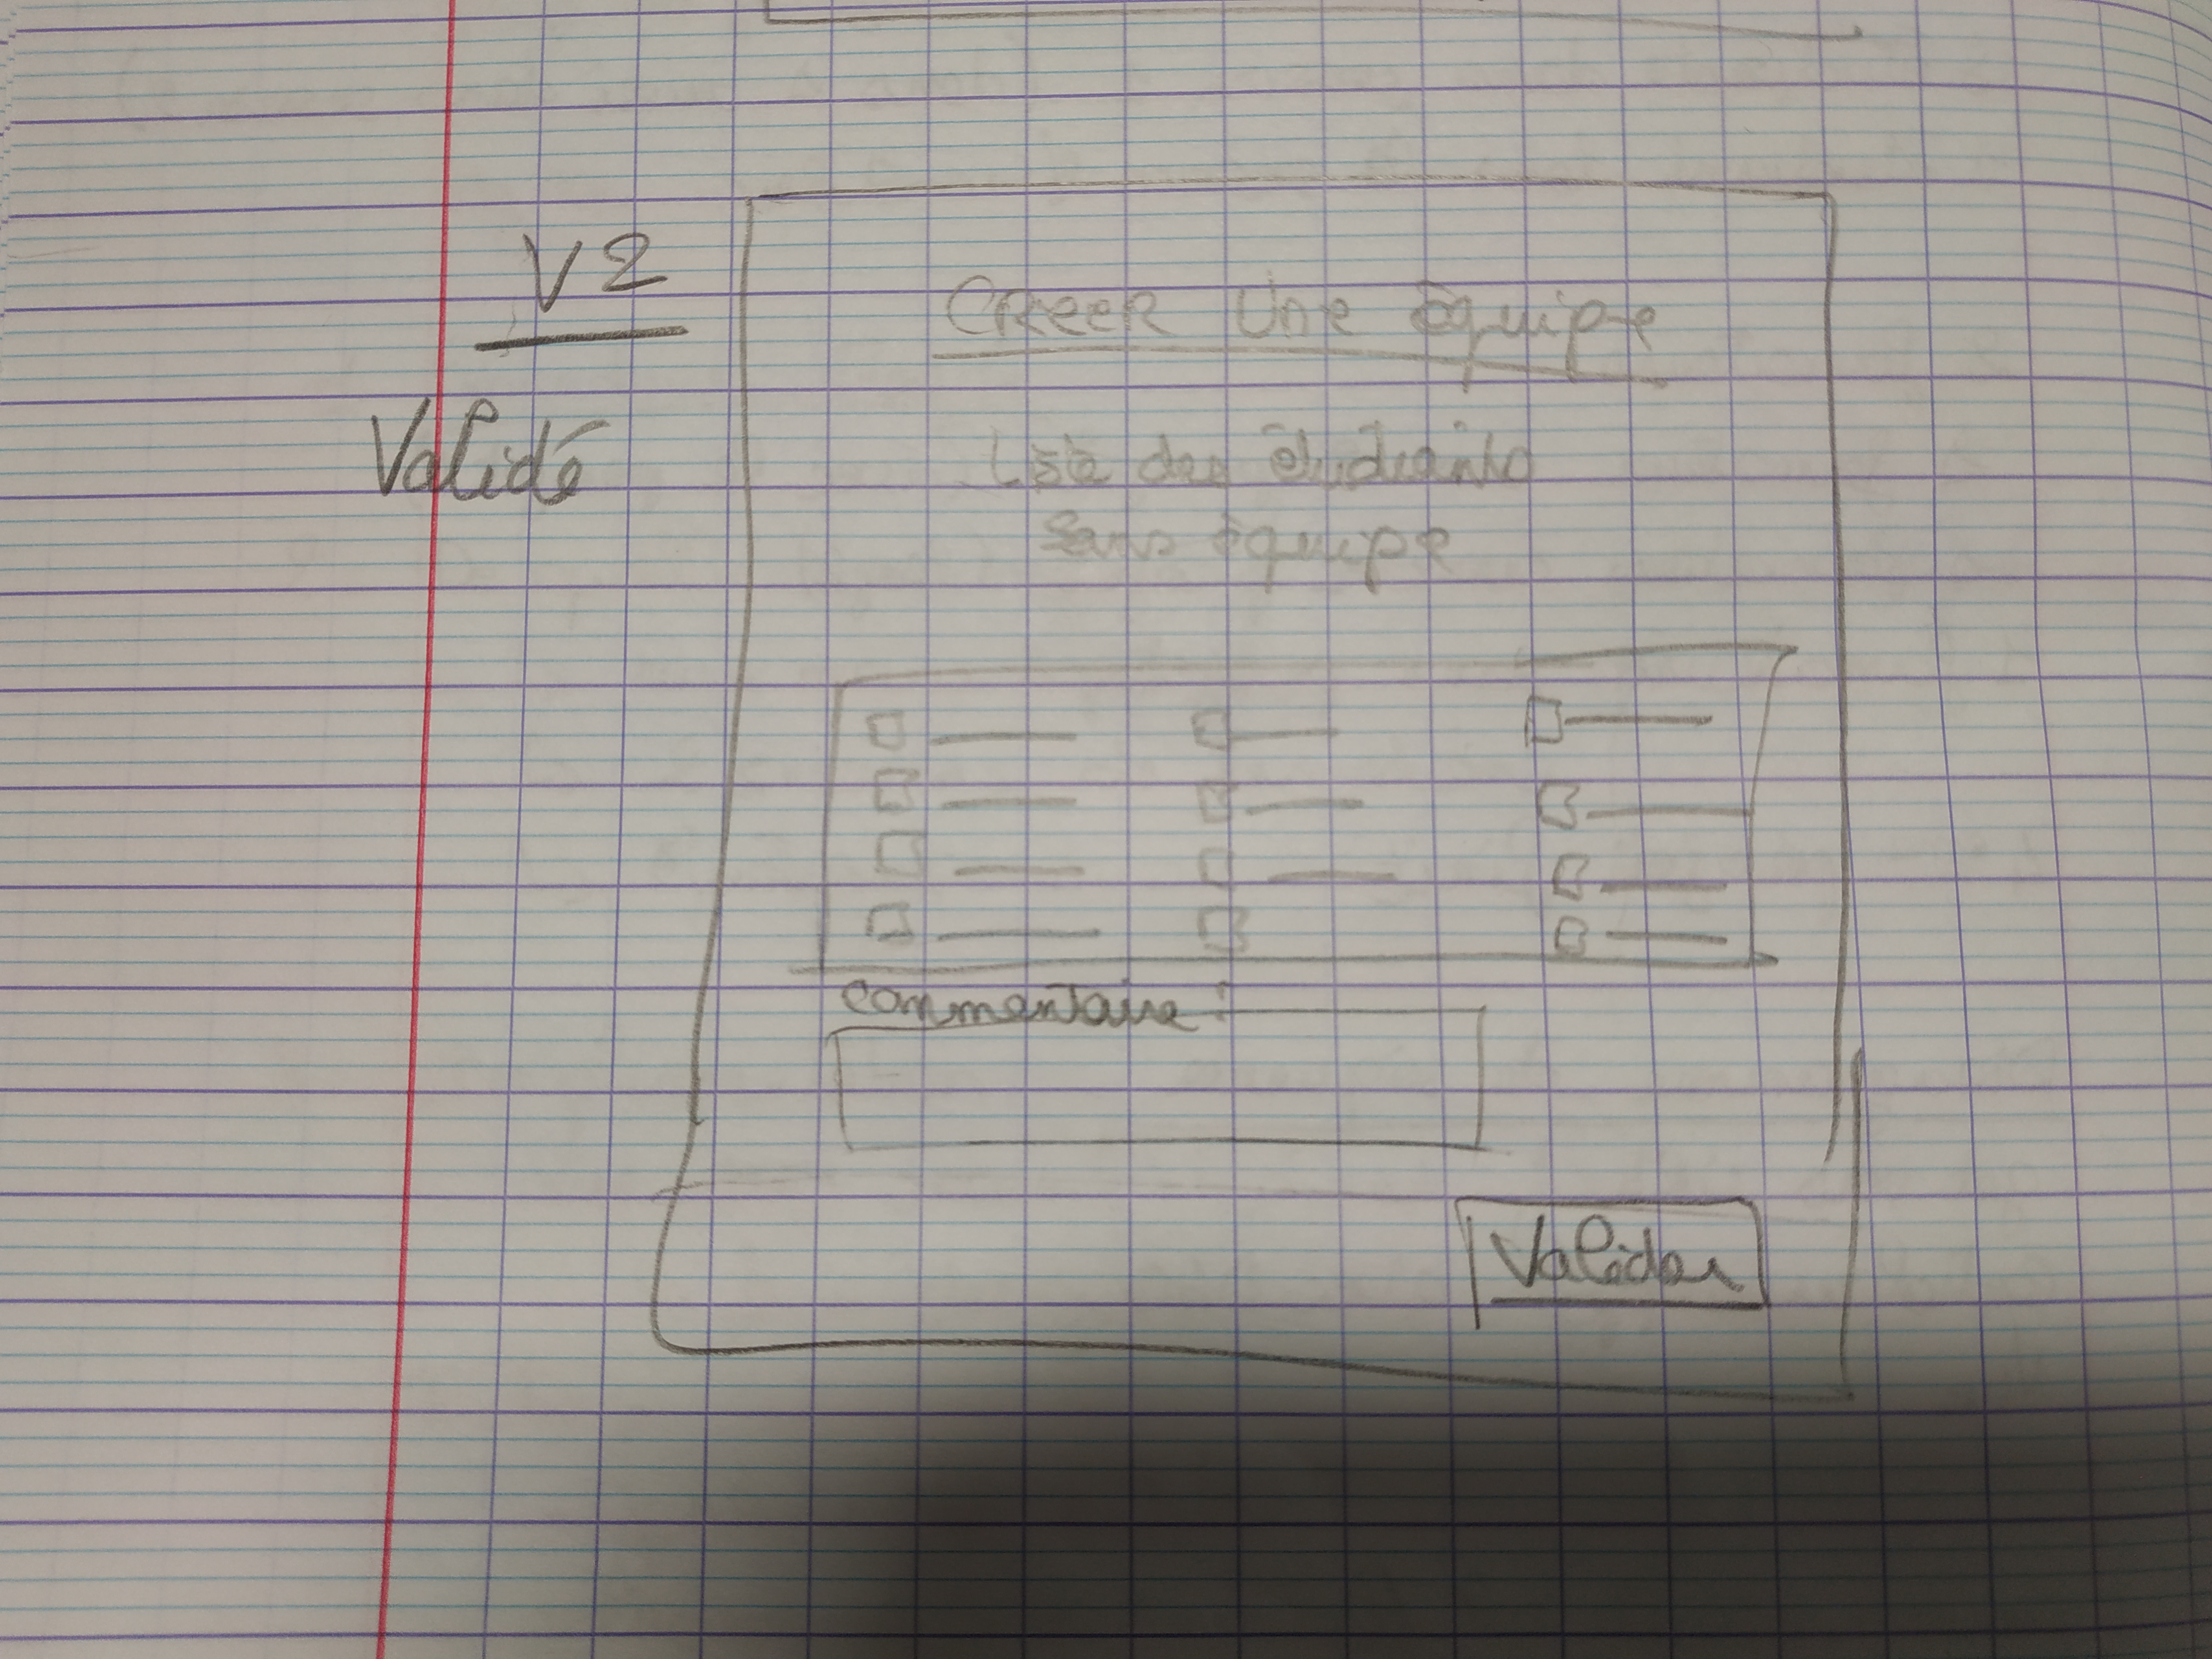 V2
Validé
Créer Une équipe
Liste des étudiants
sans équipe
Commentaire :
Valider